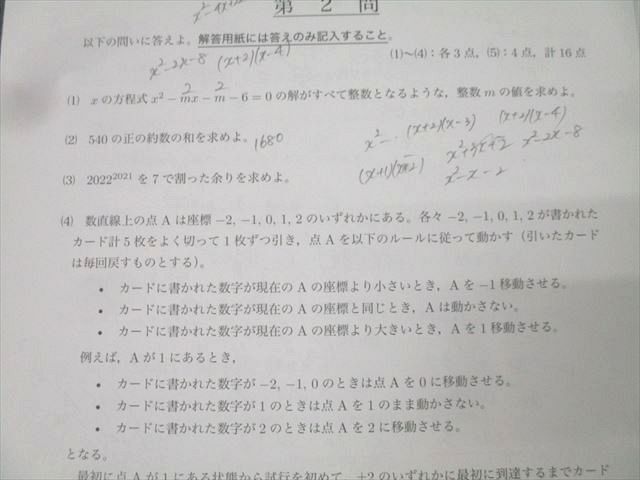 x²-4x+
第 2 問
以下の問いに答えよ。解答用紙には答えのみ記入すること。
(1)~(4):各3点,(5):4点,計16点
x²-2x-8 (x+2)(x-4)
2 2
(1) xの方程式 x²-mx-m-6=0の解がすべて整数となるような,整数mの値を求めよ。
(2) 540の正の約数の和を求めよ。1680
x²-- (x+2)(x-3) (x+2)(x-4)
x²+3x+2 x²-2x-8
(3) 2022²⁰²¹を7で割った余りを求めよ。
(x+1)(x+2) x²-x-2
(4) 数直線上の点Aは座標-2, -1, 0, 1, 2のいずれかにある。各々-2, -1, 0, 1, 2が書かれた
カード計5枚をよく切って1枚ずつ引き,点Aを以下のルールに従って動かす(引いたカード
は毎回戻すものとする)。
• カードに書かれた数字が現在のAの座標より小さいとき,Aを-1移動させる。
• カードに書かれた数字が現在のAの座標と同じとき,Aは動かさない。
• カードに書かれた数字が現在のAの座標より大きいとき,Aを1移動させる。
例えば,Aが1にあるとき,
• カードに書かれた数字が-2, -1, 0のときは点Aを0に移動させる。
• カードに書かれた数字が1のときは点Aを1のまま動かさない。
• カードに書かれた数字が2のときは点Aを2に移動させる。
となる。
最初に点Aが1にある状態から試行を初めて,±2のいずれかに最初に到達するまでカード